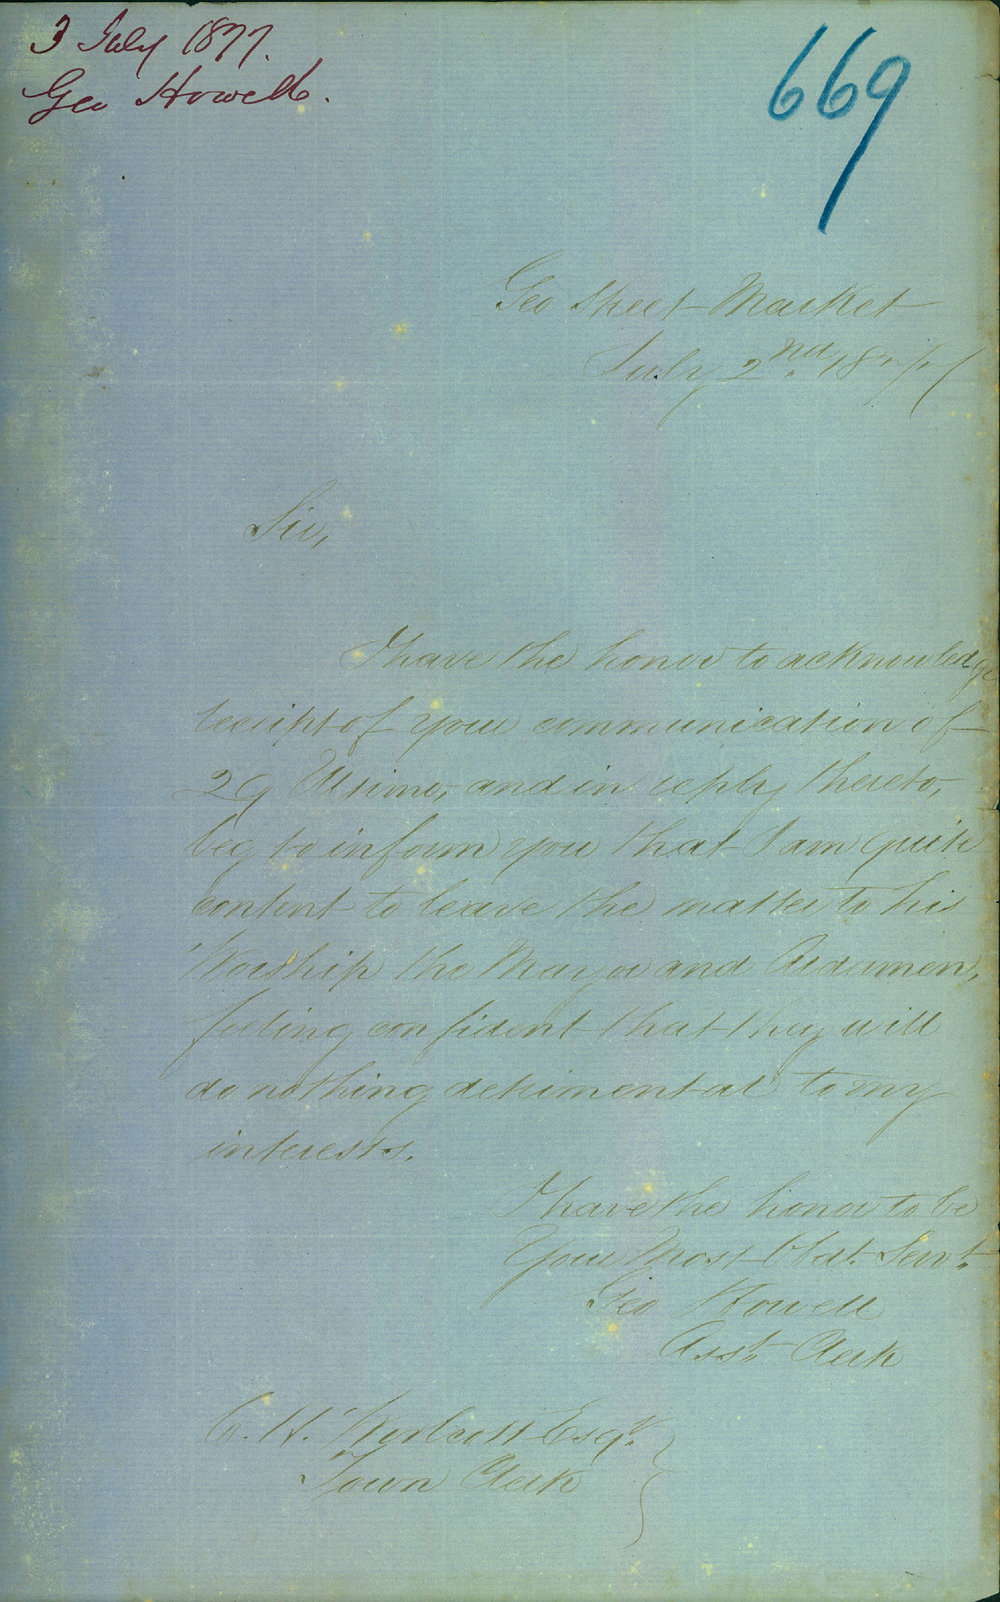 3 July 1877.
Geo Howell.
669
Geo Street Market
July 2nd. 1877
Sir,
I have the honor to acknowledge
receipt of your communication of
29 Ultimo, and in reply thereto,
beg to inform you that I am quite
content to leave the matter to his
Worship the Mayor and Aldermen,
feeling confident that they will
do nothing detrimental to my
interests.
I have the honor to be
Your Most Obdt. Servt.
Geo Howell
Asst. Clerk
C. H. Woolcott Esqr.
Town Clerk